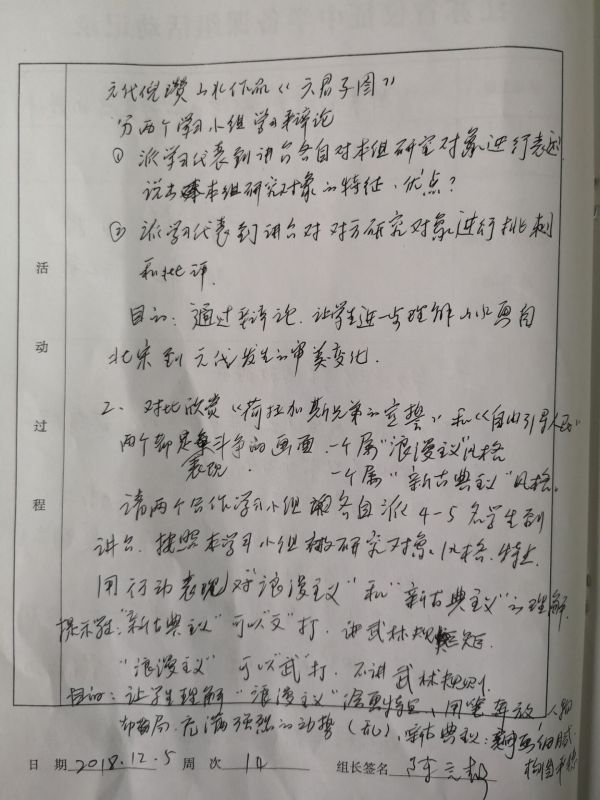 元代倪瓒山水作品《六君子图》
分两个学习小组学习辩论
① 派学习代表到讲台各自对本组研究对象进行表述
说出本组研究对象的特征、优点？
② 派学习代表到讲台对对方研究对象进行挑刺
和批评.
目的：通过辩论.让学生进一步理解山水画自
北宋到元代发生的审美变化.
2、对比欣赏《荷拉加斯兄弟的宣誓》和《自由引导人民》
两个都是表现斗争的画面.一个属"浪漫主义"风格
一个属"新古典主义"风格.
请两个合作学习小组各自派4-5名学生到
讲台.按照本学习小组研究对象风格.特点
用行动表现对"浪漫主义"和"新古典主义"的理解.
提示:"新古典主义"可以"文"打.讲武林规矩.
"浪漫主义"可以"武"打.不讲武林规则.
目的：让学生理解"浪漫主义"绘画特点、用笔奔放、人物
布局.充满强烈的动势(乱),新古典主义：画面细腻.
活动过程
日期 2018.12.5 周次 14 组长签名